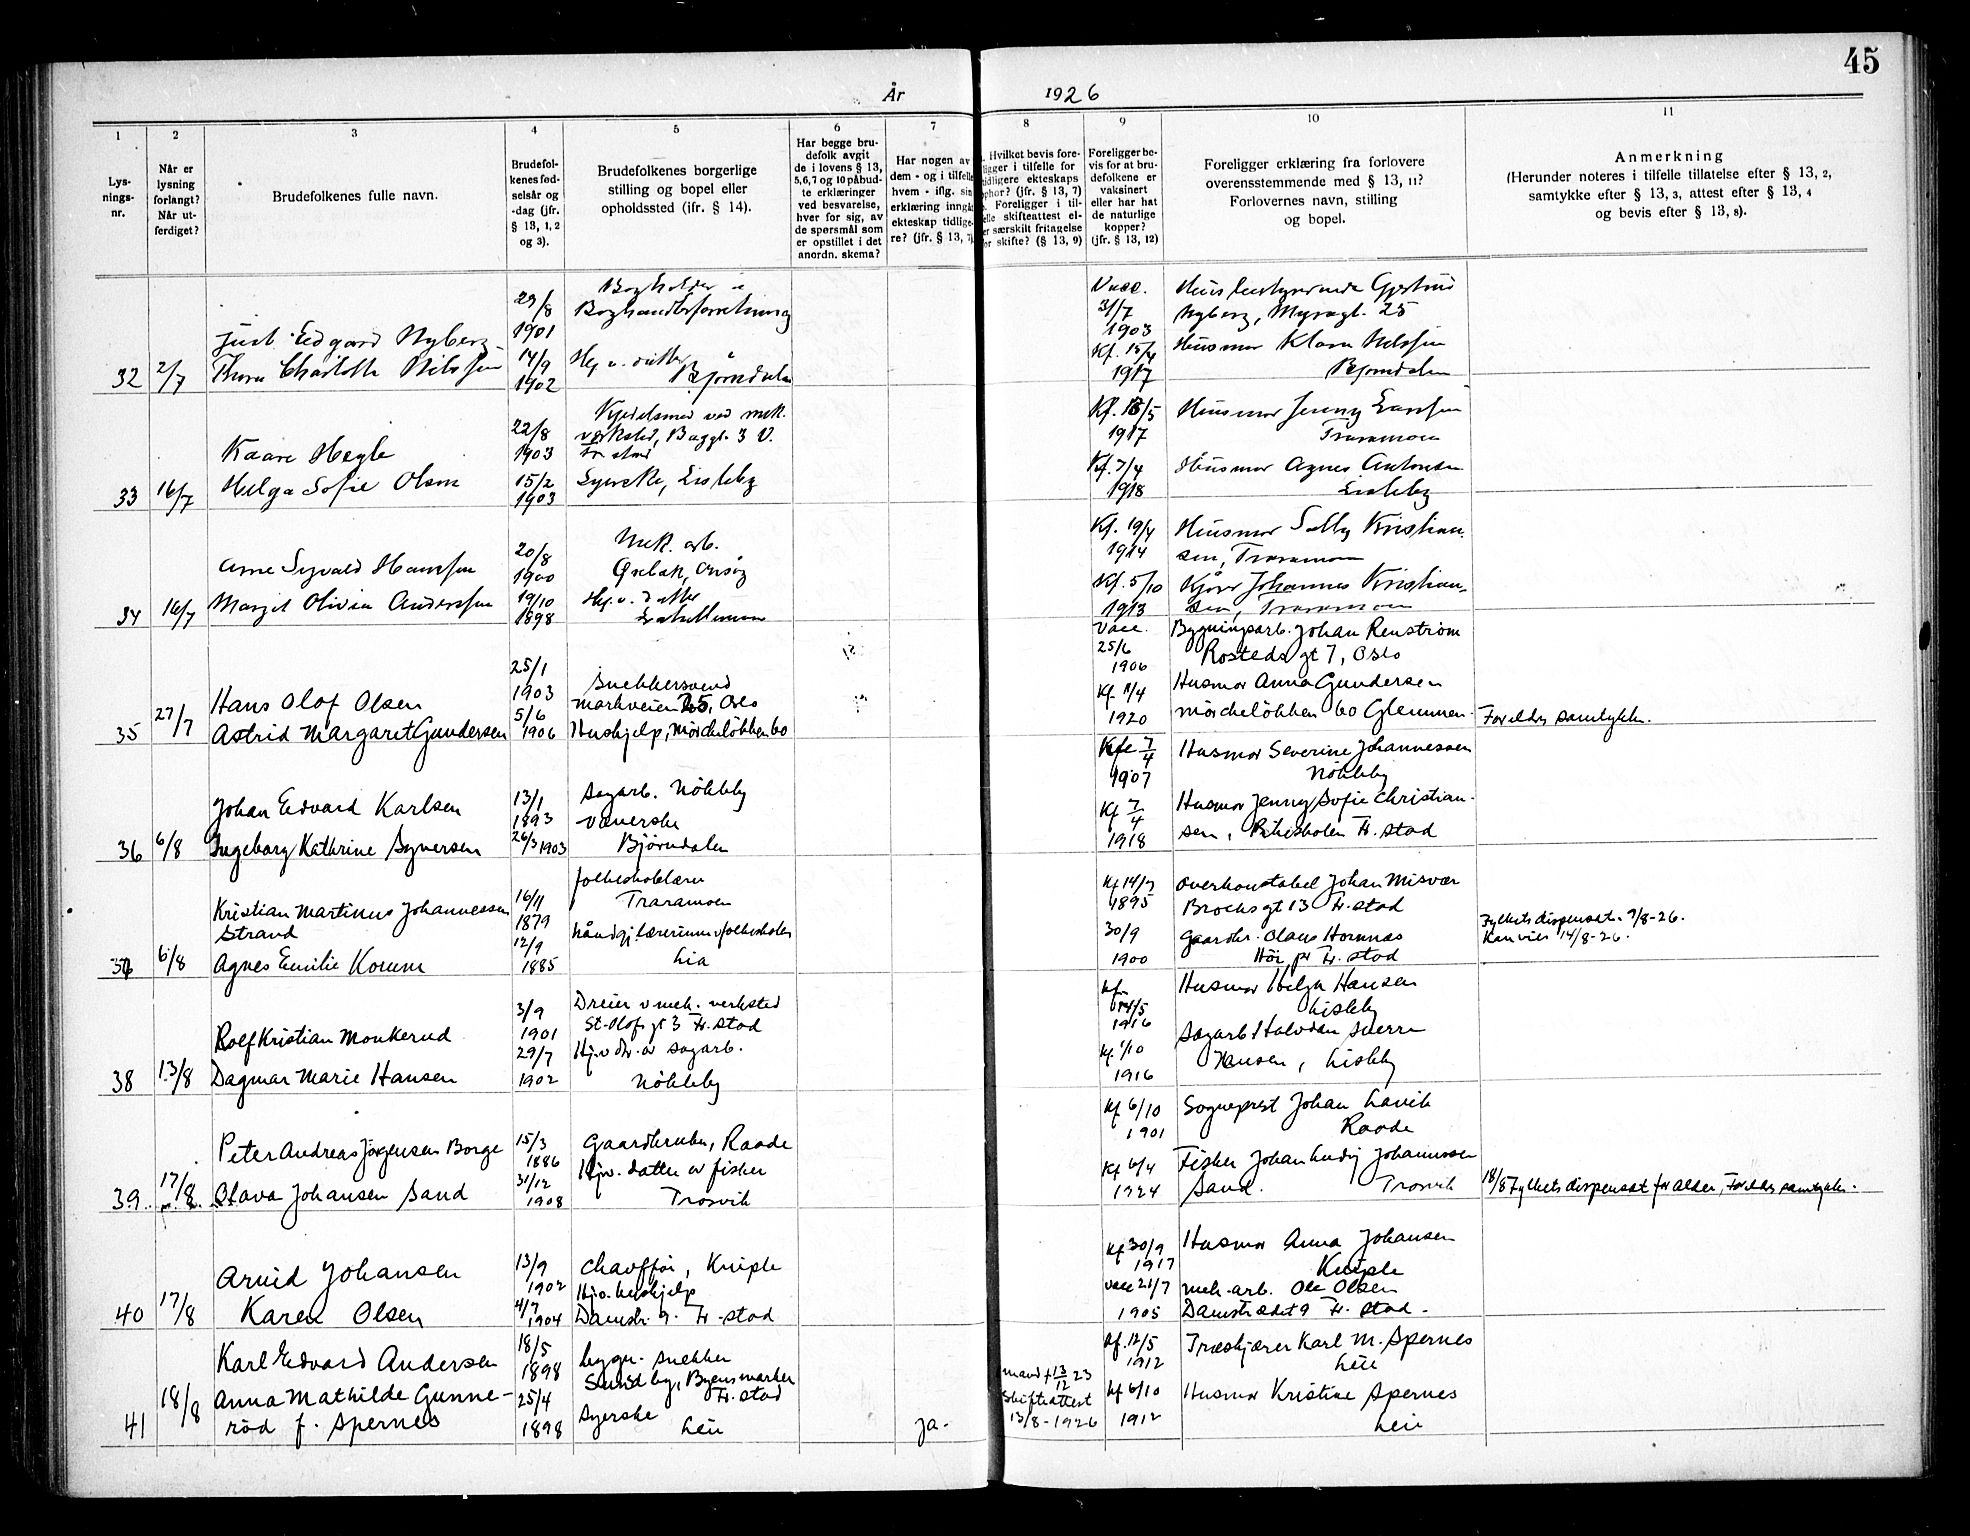 45
År 1926
1 2 3 4 5 6 7 8 9 10 11
Lys-
nings-
nr.
Når er
lysning
forlangt?
Når ut-
ferdiget?
Brudefolkenes fulle navn.
Brudefol-
kenes fød-
selsår og
-dag (jfr.
§ 13, 1, 2
og 3).
Brudefolkenes borgerlige
stilling og bopel eller
opholdssted (ifr. § 14).
Har begge bru-
defolk avgit
de i lovens § 13,
5, 6, 7 og 10 påbud-
te erklæringer
ved besvarelse,
hver for sig, av
de spørsmål som
er opstillet i det
anordn. skema?
Har nogen av
dem - og i tilfelle
hvem - iflg. sin
erklæring inngå
ekteskap tidlige-
re? (jfr. § 13, 7)
Hvilket bevis fore-
ligger i tilfelle for
tidligere ekteskaps
ophør? (jfr. § 13, 7)
Foreligger i til-
felle skifteattest el-
er særskilt fritagelse
for skifte? (§ 13, 9)
Foreligger be-
vis for at bru-
defolkene er
vaksinert
eller har hat
de naturlige
kopper?
(jfr. § 13, 12)
Foreligger erklæring fra forlovere
overensstemmende med § 13, 11?
Forlovernes navn, stilling
og bopel.
Anmerkning
(Herunder noteres i tilfelle tillatelse efter § 13, 2,
samtykke efter § 13, 3, attest efter § 13, 4
og bevis efter § 13, 8).
32 2/7
Edgard Nyberg
Charlotte Nilssen
29/8
1901
14/9
1902
Bogholder i
Boghandlerforretning
Hj. v. datter
Bjørndalen
Vacc.
31/7
1903
Kf. 15/4
1917
Gjertrud
Nyberg, Myragt. 25
Husmor Klara Nilssen
Bjørndalen
33 16/7
Kaare Hegle
Helga Sofie Olsen
22/8
1903
15/2
1903
Kjedelsmed ved mek.
verksted, Baggt. 3 V.
Fr. stad
Syerske, Lisleby
Kf. 13/5
1917
Kf. 7/4
1918
Husmor Jenny Larssen
Traramoen
Husmor Agnes Antonsen
Lisleby
34 16/7
Arne Sigvald Hanssen
Margit Olivia Anderssen
20/8
1900
19/10
1898
Mek. arb.
Ørebæk, Onsøy
Hj. v. datter
Kf. 19/4
1914
Kf. 5/10
1913
Husmor Solly Kristian-
sen, Traramoen
Kjører Johannes Kristian-
sen, Traramoen
35 27/7
Hans Olof Olsen
Astrid Margaret Gundersen
25/1
1903
5/6
1906
Snekkersvend
Markveien 25, Oslo
Hushjelp, Mörcheløkken 60
Vacc.
25/6
1906
Kf. 11/4
1920
Bygningsarb. Johan Renström
Rosteds gt 7, Oslo
Husmor Anna Gundersen
Mörcheløkken 60 Glemmen.
Foreldres samtykke.
36 6/8
Johan Edvard Karlsen
Ingeborg Kathrine Syversen
13/1
1893
26/3 1903
Sagarb. Nökleby
Væverske
Bjørndalen
Kf 7/4
1907
Kf 7/4
1918
Husmor Severine Johannessen
Nökleby
Husmor Jenny Sofie Christian-
sen, Fr. stad
6/8
Kristian Martinus Johannessen
Strand
Agnes Emilie Korum
16/11
1879
12/9
1885
folkeskolelærer
Traramoen
håndgj. lærerinne v folkeskolen
Lia
Kf 14/7
1895
30/9
1900
Overkonstabel Johan Misvær
Brochs gt 13 Fr. stad
Gaardbr. Olaus Hornnæs
pr Fr. stad
Fylkets dispensat. 9/8-26.
14/8-26.
38 13/8
Rolf Kristian Monkerud
Dagmar Marie Hansen
3/9
1901
29/7
1902
Dreier v mek. verksted
St. Olofs gt 3 Fr. stad
Hj. v dtr. av sagarb.
Nökleby
Kf.
14/5
1916
Kf. 1/10
1916
Husmor Helga Hansen
Lisleby
Sagarb Halvdan Sverre
Hansen, Lisleby
39. 17/8
Peter Andreas Jörgensen Borge
Olava Johansen Sand
15/3
1886
31/12
1908
Gaardbruker, Raade
Hjv. datter av fisker
Trosvik
Kf 6/10
1901
Kf 6/4
1924
Sogneprest Johan Lavik
Raade
Fisker Johan Ludvig Johannessen
Sand. Trosvik
18/8 Fylkets dispensat for alder, Foreldres samtykke.
40 17/8
Arvid Johansen
Karen Olsen
13/9
1902
4/7
1904
Chauffør, Kniple
Hjv. hushjelp
Damstr. 9. Fr. stad
Kf 30/9
1917
Vacc 21/7
1905
Husmor Anna Johansen
Kniple
Mek. arb. Ole Olsen
Damstrædet 9 Fr. stad.
41 18/8
Karl Edvard Andersen
Anna Mathilde Gunne-
röd f. Spernes
18/5
1898
25/4
1898
bygn. snekker
Sundby, Byens marker
Fr. stad
Syerske
Leie
ja.
mand † 13/12 23
Skifteattest
13/8-1926
Kf. 12/5
1912
Kf 6/10
1912
Træskjærer Karl M. Spernes
Leie
Husmor Kristine Spernes
Leie